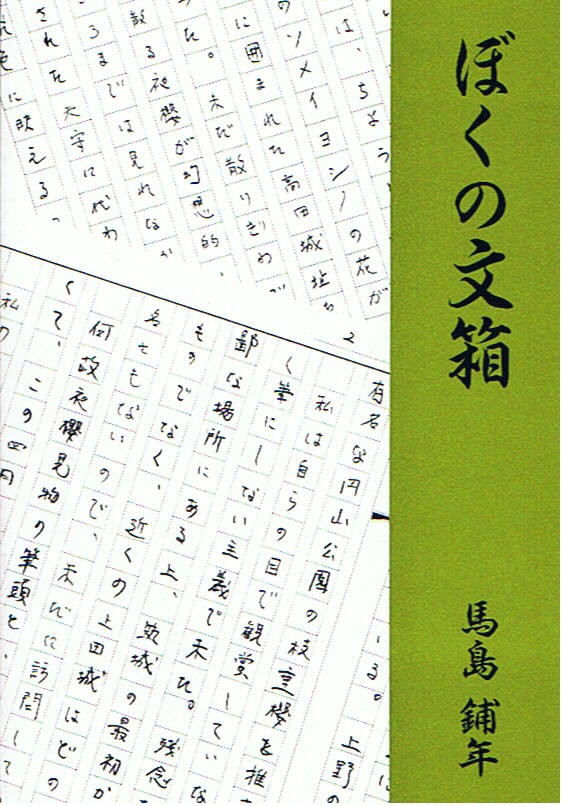 ぼくの文箱
馬島 鋪年
は、ちょう
のソメイヨシノの花が
に囲まれた高田城址
た。未だ散りぎわ
散る夜櫻が幻想的、
ろまでは見れなか
された天守に代わ
色に映える
2
いる。上野の
有名な円山公園の枝垂櫻を推
私は自らの目で観賞していな
く筆にしない主義で来た。残念
鄙な場所にある上、築城の最初か
ものでなく、近くの上田城はどの
名さもないので、未だに訪問して
何故夜櫻見物の筆頭と、
くて、この四月
私の